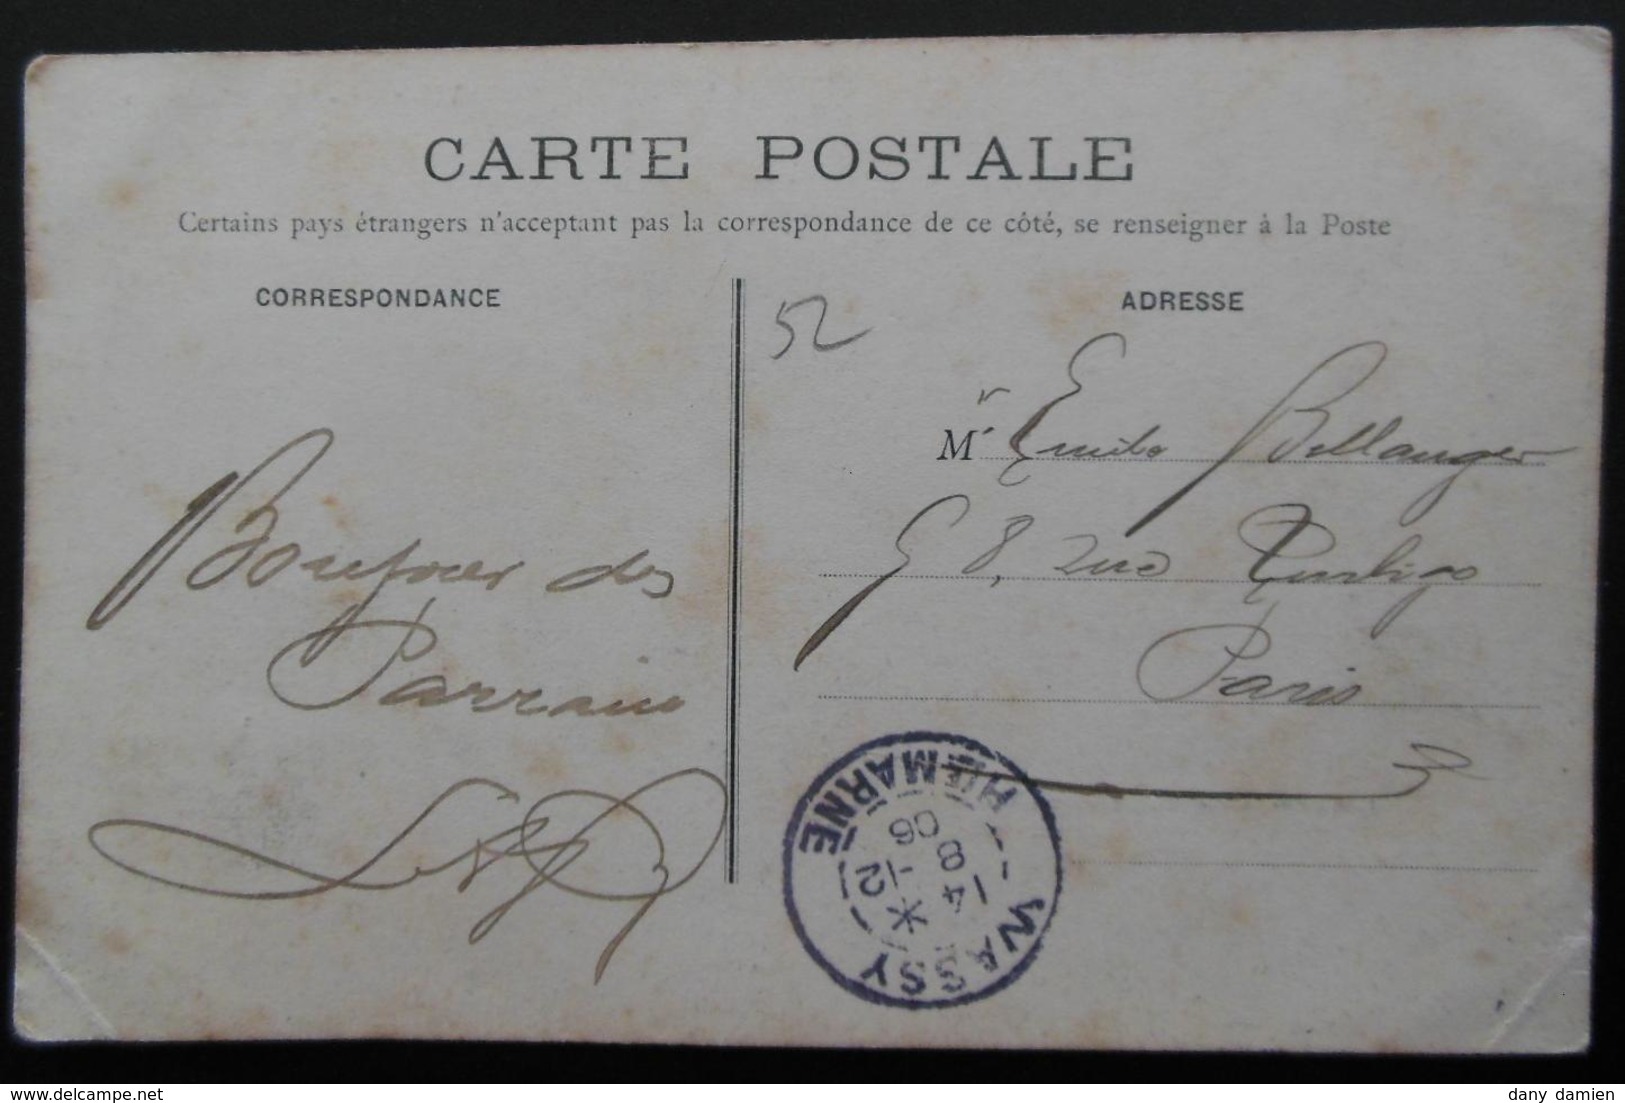 CARTE POSTALE
Certains pays étrangers n'acceptant pas la correspondance de ce côté, se renseigner à la Poste
CORRESPONDANCE
Bonjour des
Parrain
52
ADRESSE
Mr Emile Bellanger
58, rue Turbigo
Paris
WASSY
Hte MARNE
14
8
06
dany damien